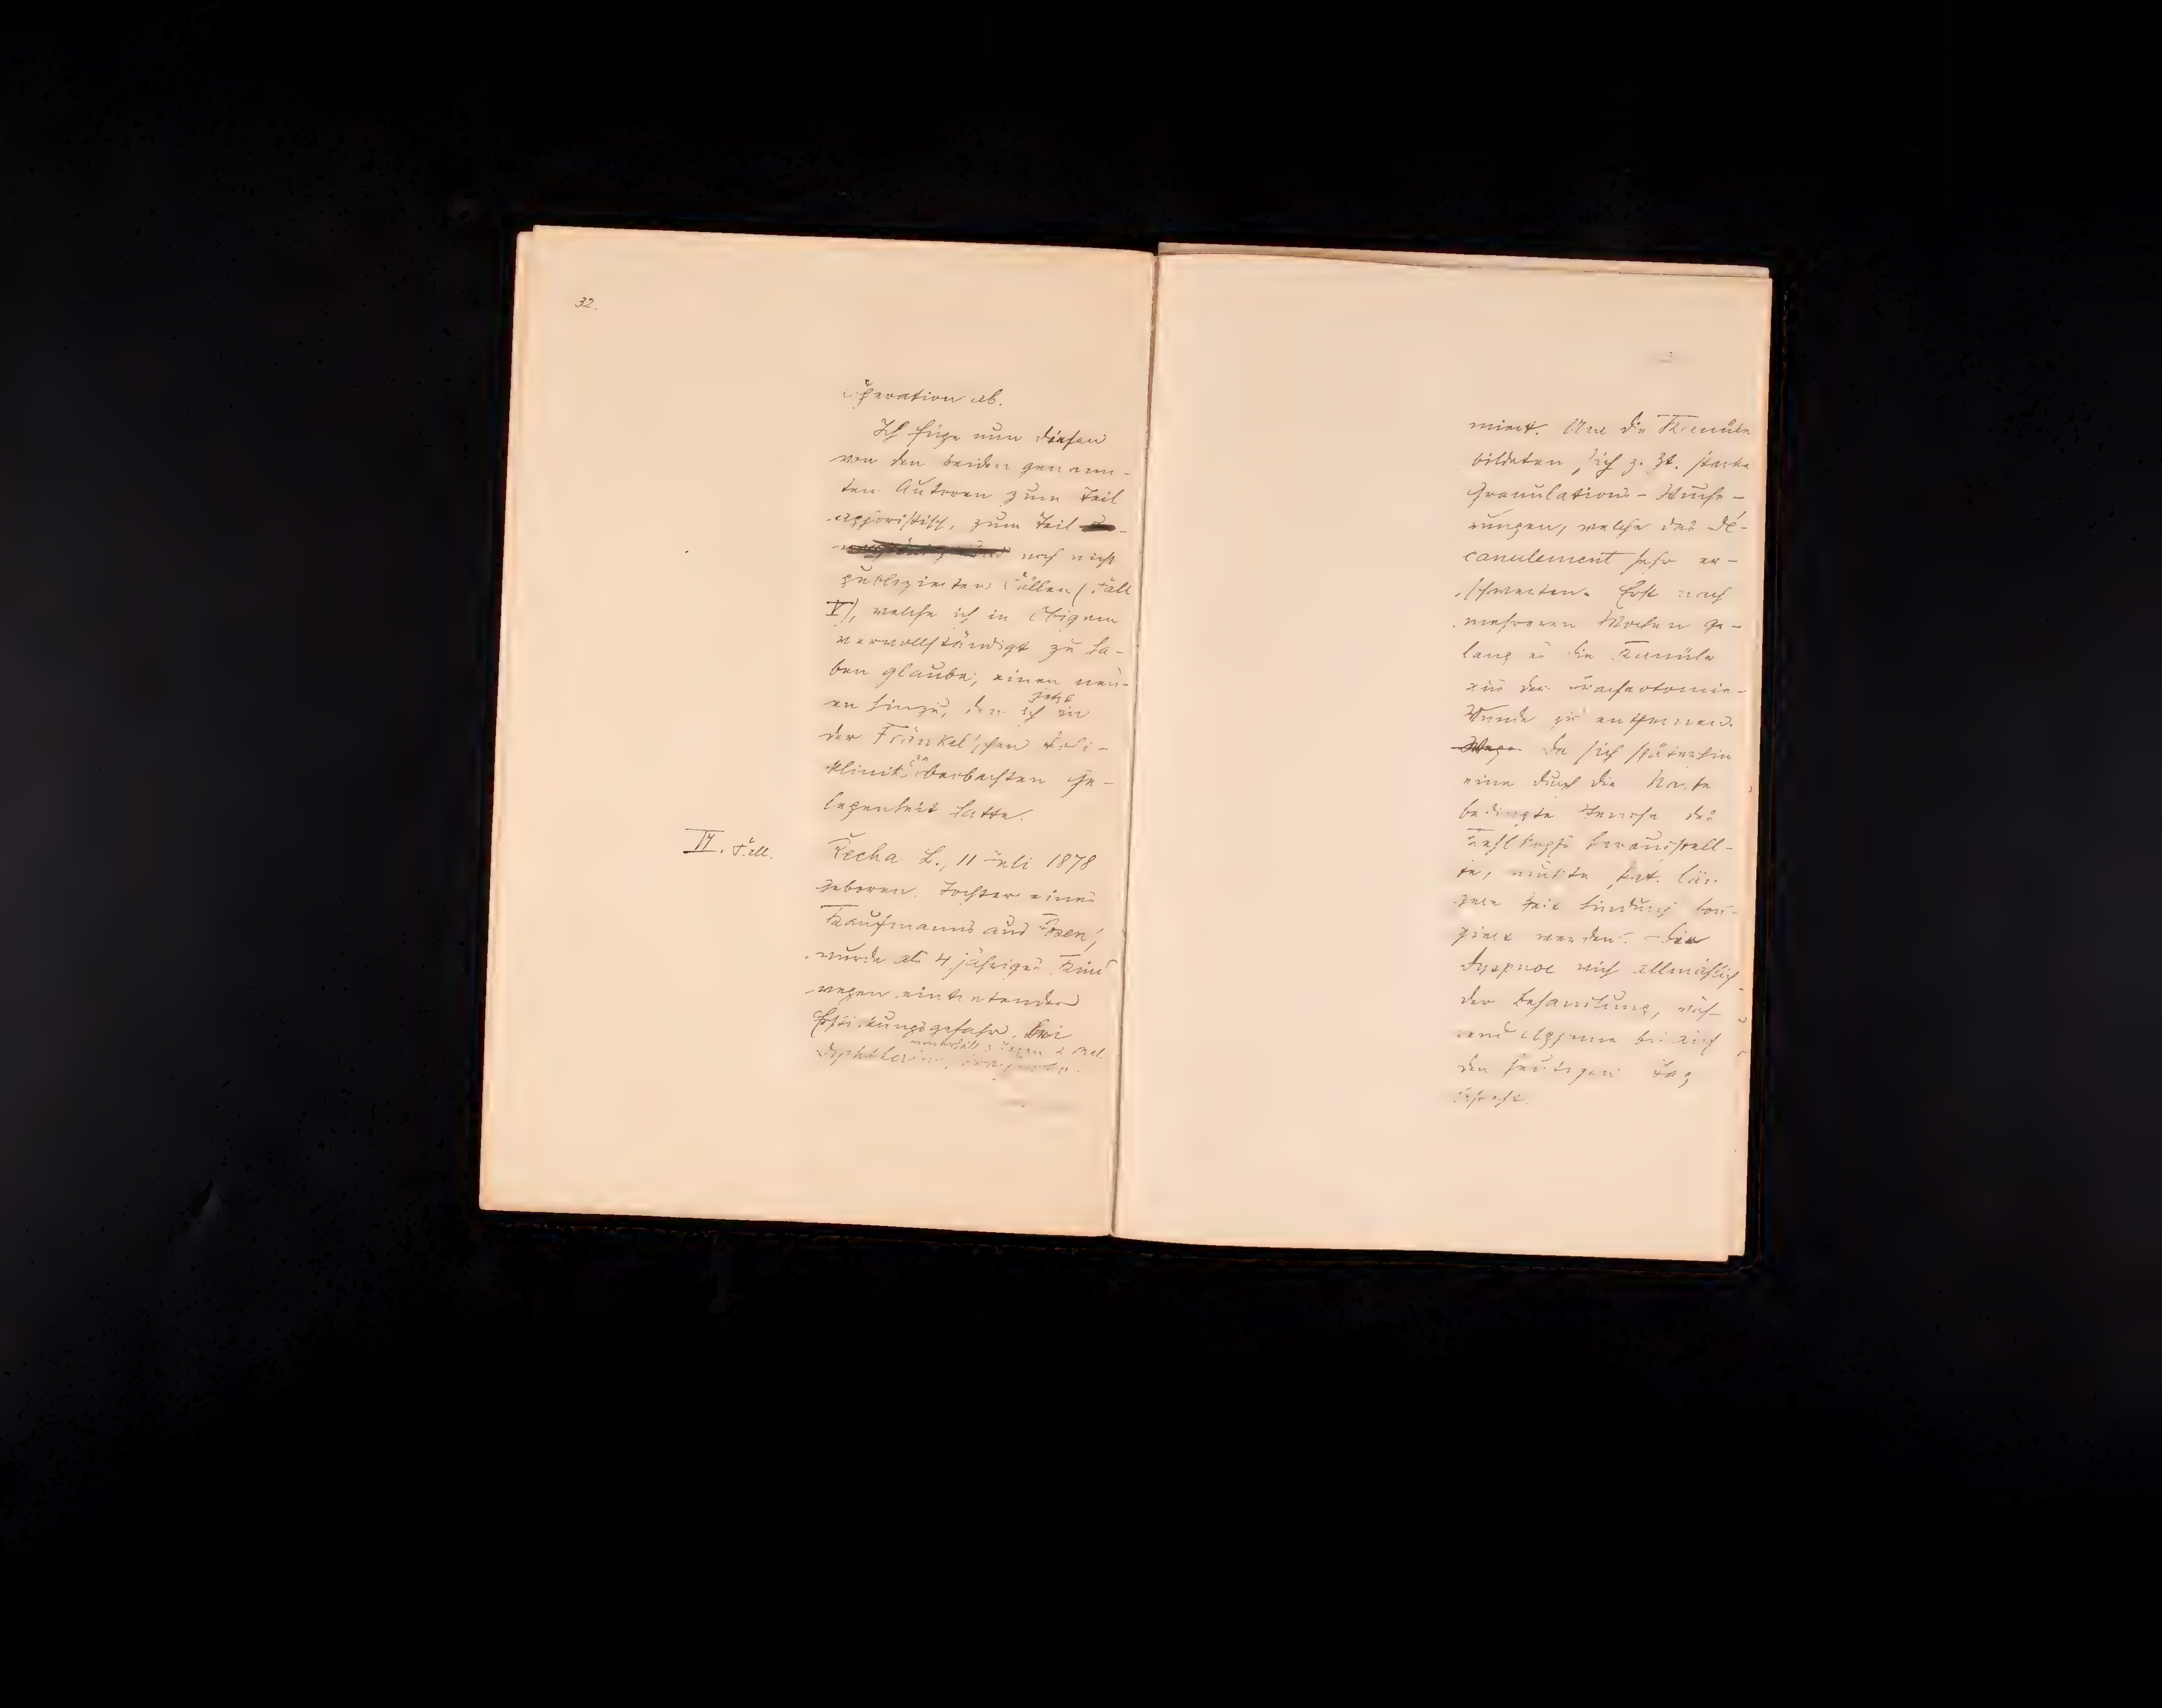 32.
Operation ab.
Ich füge nun diesen
von den beiden genann-
ten Autoren zum Teil
aphoristisch, zum Teil
noch nicht
publizierten Fällen (Fall
V), welche ich in Obigem
vervollständigt zu ha-
ben glaube, einen neu-
en hinzu, den ich jetzt in
der Fränkel'schen Poli-
klinik zu beobachten Ge-
legenheit hatte.
VI. Fall.
Recha L., 11 Juli 1878
geboren. Tochter eines
Kaufmanns aus Posen,
wurde als 4 jähriges Kind
wegen eintretender
Erstickungsgefahr bei
innerhalb 3 Tagen 2 Mal
Diphtherie
miert. Um die Kanüle
bildeten sich z. Zt. starke
Granulations-Wuche-
rungen, welche das Dé-
canulement sehr er-
schwerten. Erst nach
mehreren Wochen ge-
lang es die Kanüle
aus der Tracheotomie-
Wunde zu entfernen.
Wege Da sich späterhin
eine durch die Narbe
bedingte Stenose des
Kehlkopfs herausstell-
te, mußte Pat. län-
gere Zeit hindurch bou-
giert werden. Die
Dyspnoe wich allmählich
der Behandlung, wäh-
rend Aphonie bis auf
den heutigen Tag
besteht.